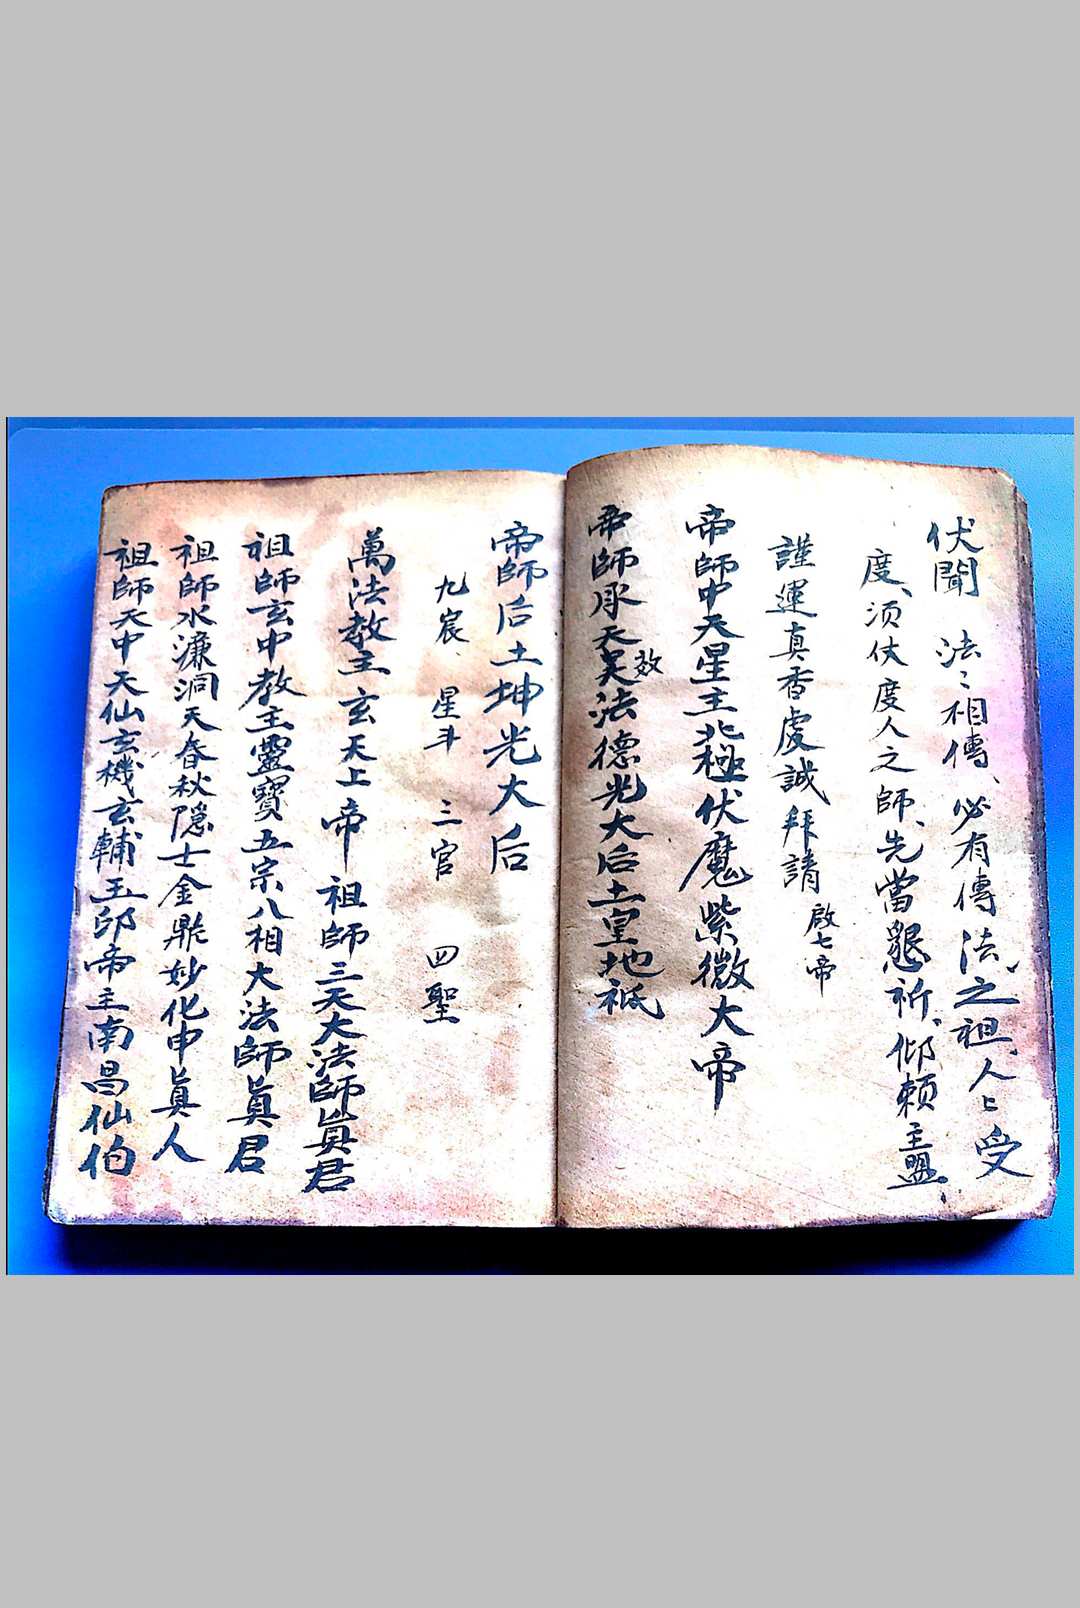 伏聞 法〻相傳、必有傳法之祖、人〻受
度、须仗度人之師、先當懇祈、仰赖主盟、
謹運真香虔誠拜請 啟七帝
帝師中天星主北極伏魔紫微大帝
帝師承天效法德光大后土皇地祗
帝師后土坤光大后
九宸 星斗 三官 四聖
萬法教主玄天上帝 祖師三天大法師真君
祖師玄中教主靈寶五宗八相大法師眞君
祖師水濂洞天春秋隱士金鼎妙化申眞人
祖師天中天仙玄機玄輔玉印帝主南昌仙伯